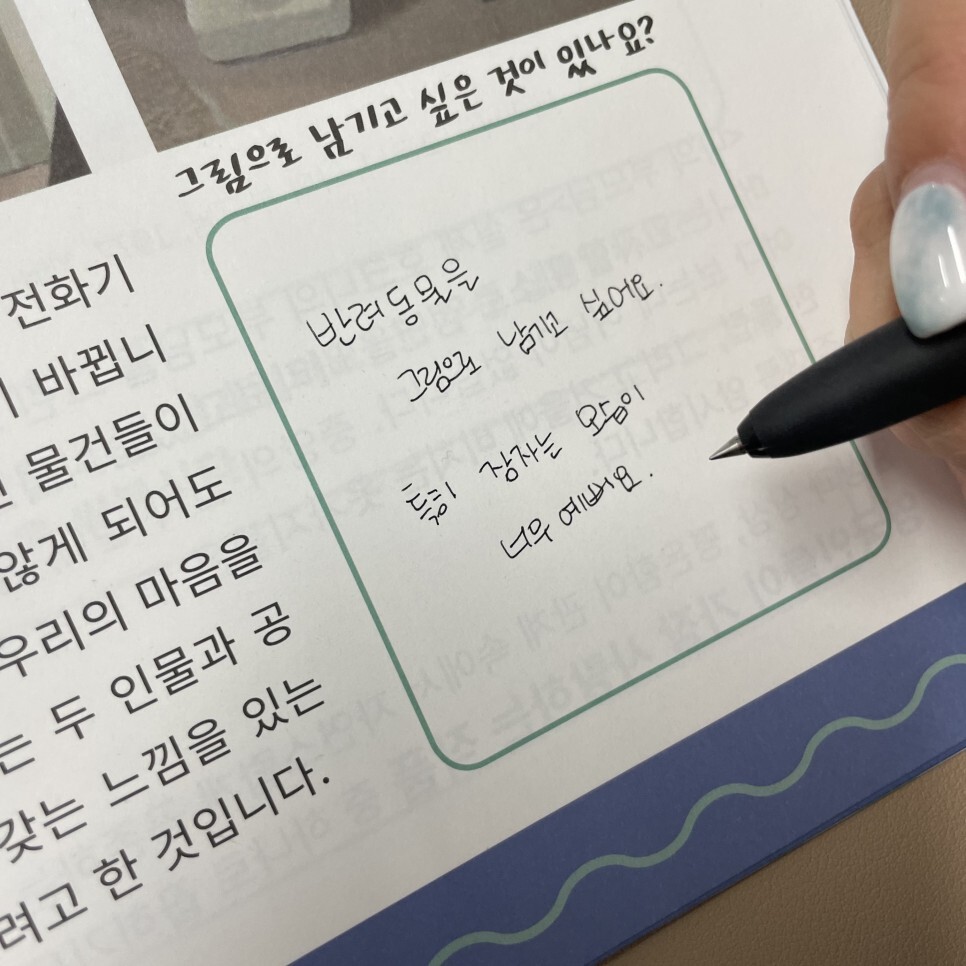 그림으로 남기고 싶은 것이 있나요?
반려동물을
그림으로 남기고 싶어요.
특히 잠자는 모습이
너무 예뻐요.
전화기
바뀝니
물건들이
않게 되어도
우리의 마음을
는 두 인물과 공
갖는 느낌을 있는
려고 한 것입니다.